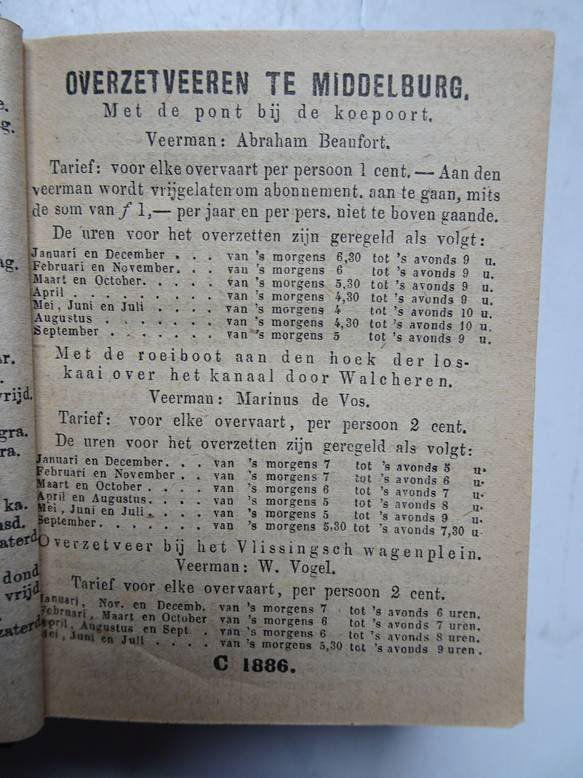 OVERZETVEEREN TE MIDDELBURG.
Met de pont bij de koepoort.
Veerman: Abraham Beaufort.
Tarief: voor elke overvaart per persoon 1 cent. — Aan den
veerman wordt vrijgelaten om abonnement. aan te gaan, mits
de som van f 1,— per jaar en per pers. niet te boven gaande.
De uren voor het overzetten zijn geregeld als volgt:
Januari en December . . . van 's morgens 6,30 tot 's avonds 9 u.
Februari en November. . . van 's morgens 6 tot 's avonds 9 u.
Maart en October. . . . . van 's morgens 5,30 tot 's avonds 9 u.
April . . . . . . . . . . van 's morgens 4,30 tot 's avonds 9 u.
Mei, Juni en Juli . . . . van 's morgens 4 tot 's avonds 10 u.
Augustus . . . . . . . . van 's morgens 4,30 tot 's avonds 10 u.
September . . . . . . . . van 's morgens 5 tot 's avonds 9 u.
Met de roeiboot aan den hoek der los-
kaai over het kanaal door Walcheren.
Veerman: Marinus de Vos.
Tarief: voor elke overvaart, per persoon 2 cent.
De uren voor het overzetten zijn geregeld als volgt:
Januari en December. . . van 's morgens 7 tot 's avonds 5 u.
Februari en November . . van 's morgens 7 tot 's avonds 6 u.
Maart en October . . . . van 's morgens 6 tot 's avonds 7 u.
April en Augustus. . . . van 's morgens 5 tot 's avonds 8 u.
Mei, Juni en Juli . . . . van 's morgens 5 tot 's avonds 9 u.
September. . . . . . . . van 's morgens 5,30 tot 's avonds 7,30 u.
Overzetveer bij het Vlissingsch wagenplein.
Veerman: W. Vogel.
Tarief voor elke overvaart, per persoon 2 cent.
Januari, Nov. en Decemb. van 's morgens 7 tot 's avonds 6 uren.
Februari, Maart en October van 's morgens 6 tot 's avonds 7 uren.
April, Augustus en Sept. . van 's morgens 6 tot 's avonds 8 uren.
Mei, Juni en Juli . . . . van 's morgens 5,30 tot 's avonds 9 uren.
C 1886.